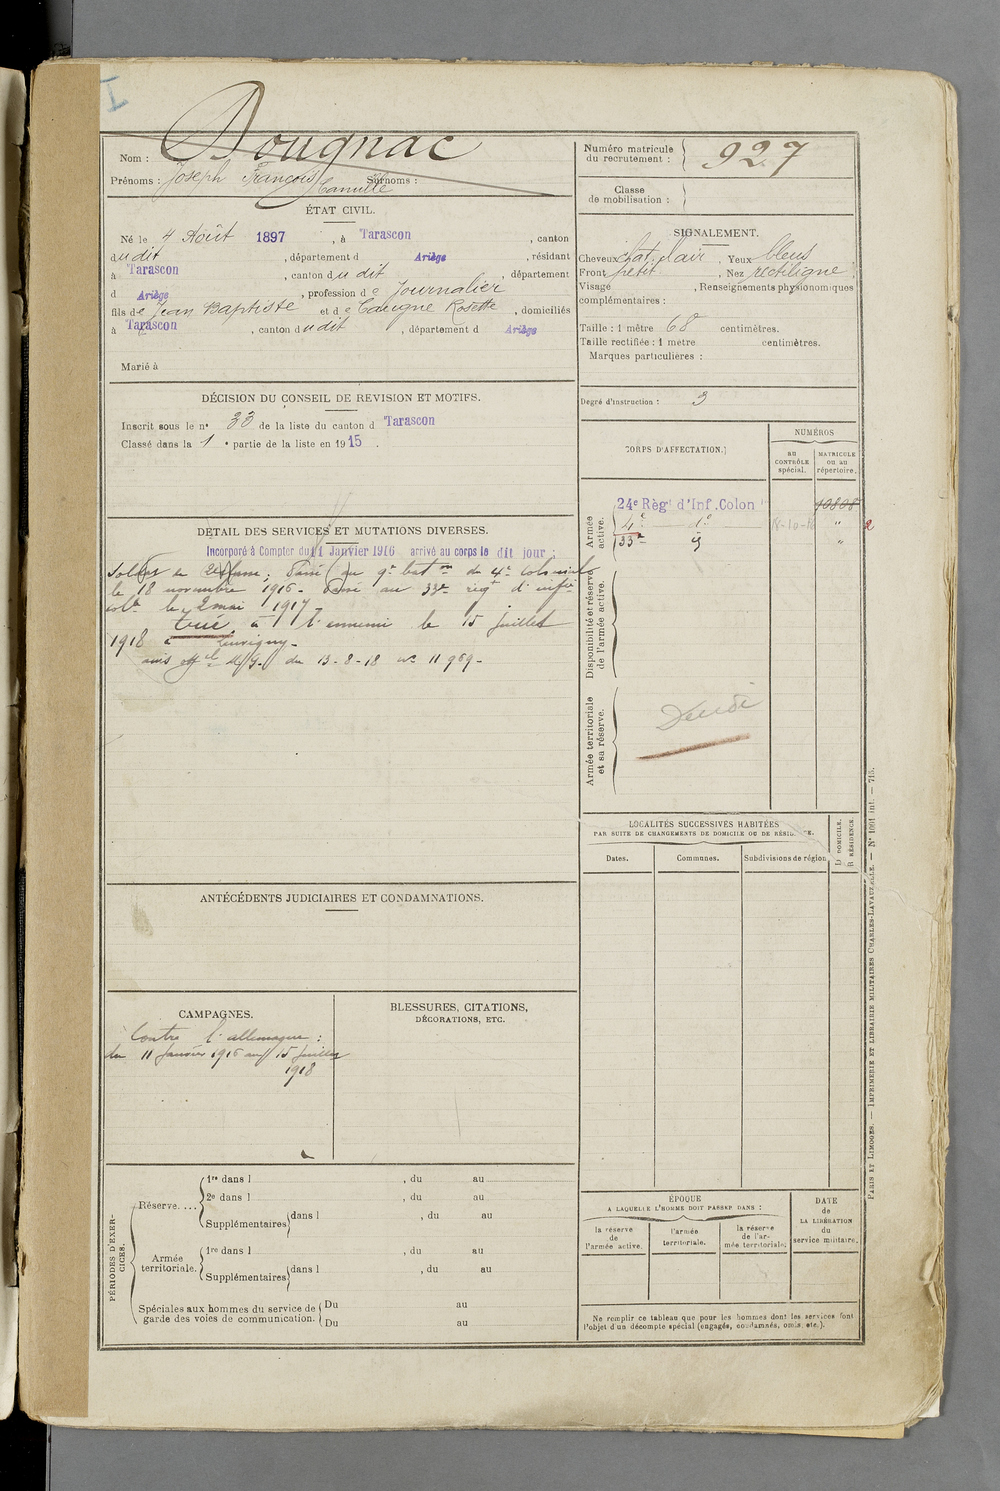 I
Nom : Dougnac
Prénoms : Joseph François Camille Surnoms :
Numéro matricule du recrutement : 927
Classe de mobilisation :
ÉTAT CIVIL.
Né le 4 Août 1897 , à Tarascon , canton
dudit , département d Ariège , résidant
à Tarascon , canton dudit , département
d Ariège , profession de Journalier
fils de Jean Baptiste et de Caugne Rosette , domiciliés
à Tarascon , canton dudit , département d Ariège
Marié à
SIGNALEMENT.
Cheveux chat. clair , Yeux bleus
Front petit , Nez rectiligne
Visage , Renseignements physionomiques
complémentaires :
Taille : 1 mètre 68 centimètres.
Taille rectifiée : 1 mètre centimètres.
Marques particulières :
Degré d'instruction : 3
DÉCISION DU CONSEIL DE REVISION ET MOTIFS.
Inscrit sous le n° 33 de la liste du canton d Tarascon
Classé dans la 1 e partie de la liste en 1915 .
CORPS D'AFFECTATION.
NUMÉROS
AU CONTRÔLE spécial.
MATRICULE ou au répertoire.
Armée active.
24e Règt d'Inf. Colon 10808
4e do 18-10-16 "
33e id "
2
Disponibilité et réserve de l'armée active.
Armée territoriale et sa réserve.
DÉTAIL DES SERVICES ET MUTATIONS DIVERSES.
Incorporé à Compter du 11 Janvier 1916 arrivé au corps le dit jour ;
Soldat de 2e classe; Passé au 9e baton du 4e colonial
le 18 novembre 1916. Passé au 33e régt d'infie
cole le 2 mai 1917
tué à l'ennemi le 15 juillet
1918 à Leuvrigny.
avis offel M/G. du 13-8-18 No 11969.
LOCALITÉS SUCCESSIVES HABITÉES
PAR SUITE DE CHANGEMENTS DE DOMICILE OU DE RÉSIDENCE.
Dates.
Communes.
Subdivisions de région
D DOMICILE.
R RÉSIDENCE.
ANTÉCÉDENTS JUDICIAIRES ET CONDAMNATIONS.
CAMPAGNES.
Contre l'allemagne :
du 11 janvier 1916 au 15 Juillet
1918
BLESSURES, CITATIONS,
DÉCORATIONS, ETC.
PÉRIODES D'EXERCICES.
Réserve....
1re dans l , du au
2e dans l , du au
Supplémentaires dans l , du au
Armée territoriale.
1re dans l , du au
Supplémentaires dans l , du au
Spéciales aux hommes du service de garde des voies de communication.
Du au
Du au
ÉPOQUE
A LAQUELLE L'HOMME DOIT PASSER DANS :
la réserve de l'armée active.
l'armée territoriale.
la réserve de l'armée territoriale.
DATE de LA LIBÉRATION du service militaire.
Ne remplir ce tableau que pour les hommes dont les services font
l'objet d'un décompte spécial (engagés, condamnés, omis, etc.).
PARIS ET LIMOGES. — IMPRIMERIE ET LIBRAIRIE MILITAIRES CHARLES-LAVAUZELLE. — N° 1001 int. — 715.